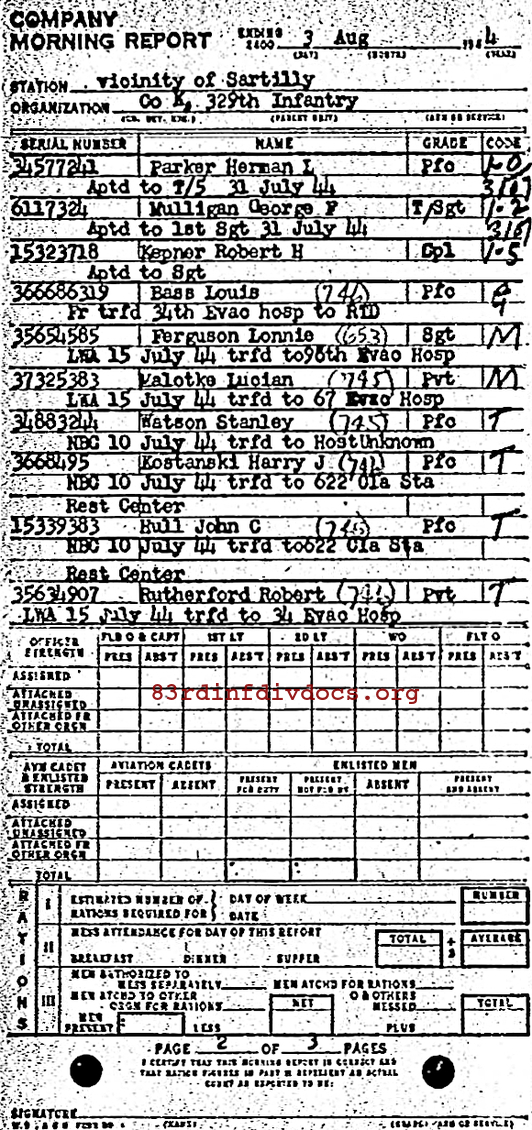 COMPANY
MORNING REPORT ENDING 2400 3 Aug 194 4
(DAY) (MONTH) (YEAR)
STATION vicinity of Sartilly
ORGANIZATION Co K, 329th Infantry
(PARENT UNIT) (ARM OR SERVICE)
SERIAL NUMBER NAME GRADE CODE
34577241 Parker Herman L Pfc
Aptd to T/5 31 July 44
6117324 Mulligan George F T/Sgt 1-2
Aptd to 1st Sgt 31 July 44 316
15323718 Kepner Robert H Cpl 1-5
Aptd to Sgt
366686319 Bass Louis (746) Pfc
Fr trfd 34th Evac hosp to RTD
35654585 Ferguson Lonnie (653) Sgt M
LWA 15 July 44 trfd to 96th Evac Hosp
37325383 Malotke Lucian (745) Pvt M
LWA 15 July 44 trfd to 67 Evac Hosp
34883244 Watson Stanley (745) Pfc T
NBC 10 July 44 trfd to HostUnknown
3668495 Kostanski Harry J (746) Pfc T
NBC 10 July 44 trfd to 622 Cla Sta
Rest Center
15339383 Hull John C (746) Pfc T
NBC 10 July 44 trfd to622 Cla Sta
Rest Center
35634907 Rutherford Robert (746) Pvt T
LWA 15 July 44 trfd to 34 Evac Hosp
OFFICER STRENGTH FLD O & CAPT 1ST LT 2D LT WO FLT O
PRES ABS'T PRES ABS'T PRES ABS'T PRES ABS'T PRES ABS'T
ASSIGNED
ATTACHED UNASSIGNED
83rdinfdivdocs.org
ATTACHED FR OTHER ORGN
TOTAL
AVN CADET & ENLISTED STRENGTH AVIATION CADETS ENLISTED MEN
PRESENT ABSENT PRESENT FOR DUTY PRESENT NOT FOR DY ABSENT PRESENT AND ABSENT
ASSIGNED
ATTACHED UNASSIGNED
ATTACHED FR OTHER ORGN
TOTAL
RATIONS
I ESTIMATED NUMBER OF RATIONS REQUIRED FOR { DAY OF WEEK DATE NUMBER
II MESS ATTENDANCE FOR DAY OF THIS REPORT TOTAL ÷ 3 AVERAGE
BREAKFAST DINNER SUPPER
III MEN AUTHORIZED TO MESS SEPARATELY MEN ATCHD FOR RATIONS
MEN ATCHD TO OTHER ORGN FOR RATIONS NET O & OTHERS MESSED TOTAL
MEN PRESENT LESS PLUS
PAGE 2 OF 3 PAGES
I CERTIFY THAT THIS MORNING REPORT IS CORRECT AND
THAT RATION FIGURES IN PART III REPRESENT AN ACTUAL
COUNT AS REPORTED TO ME:
SIGNATURE
(NAME) (GRADE) (ARM OR SERVICE)